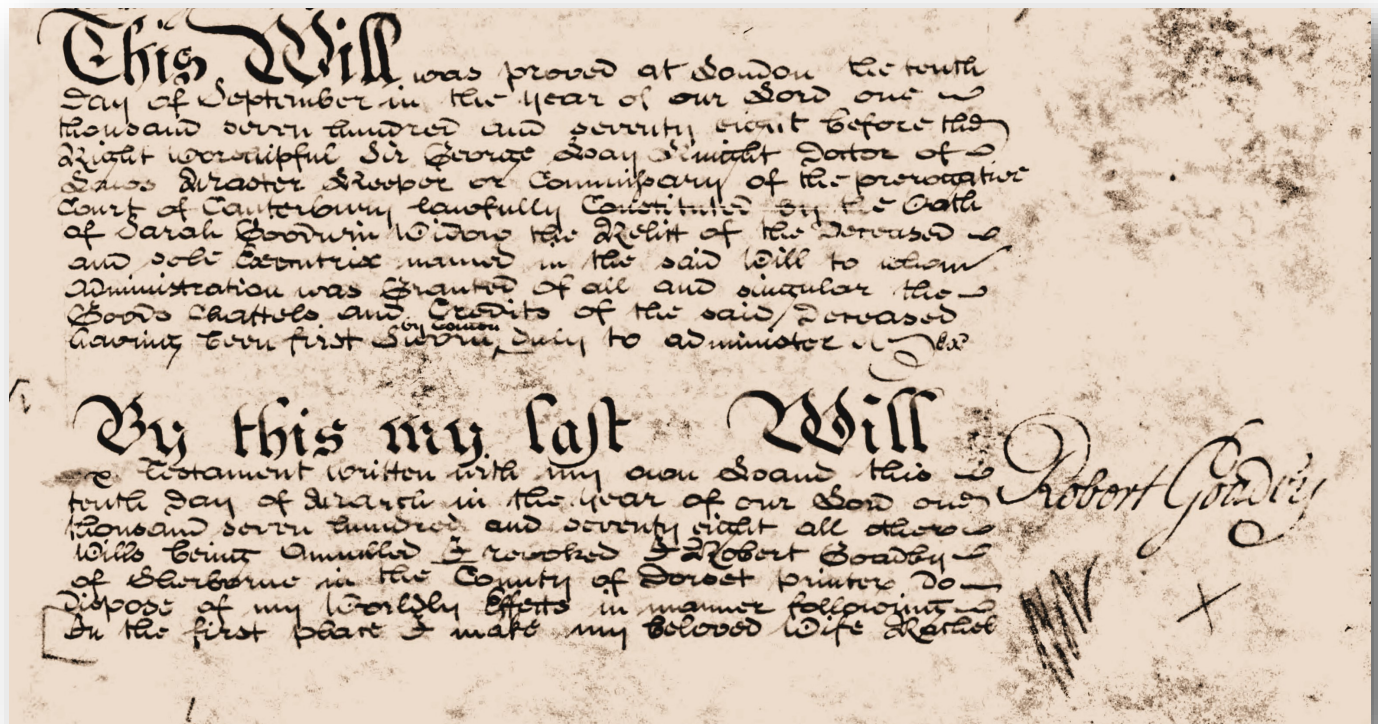 This Will was proved at London the tenth
Day of September in the year of our Lord one
thousand seven hundred and seventy eight before the
Right Worshipful Sir George Hay Knight Doctor of
Laws Master Keeper or Commissary of the prerogative
Court of Canterbury lawfully Constituted By the Oath
of Sarah Goodwin Widow the Relict of the Deceased
and sole Executrix named in the said Will to whom
administration was Granted of all and singular the
Goods Chattels and Credits of the said Deceased
having been first Sworn by Comon Duly to administer
By this my last Will
Testament written with my own Hand this
tenth Day of March in the year of our Lord one
thousand seven hundred and seventy eight all other
Wills being Annulled & revoked I Robert Goadby
of Sherborne in the County of Dorset printer Do
Dispose of my Worldly Effects in manner following
In the first place I make my beloved Wife Rachel
Robert Goadby